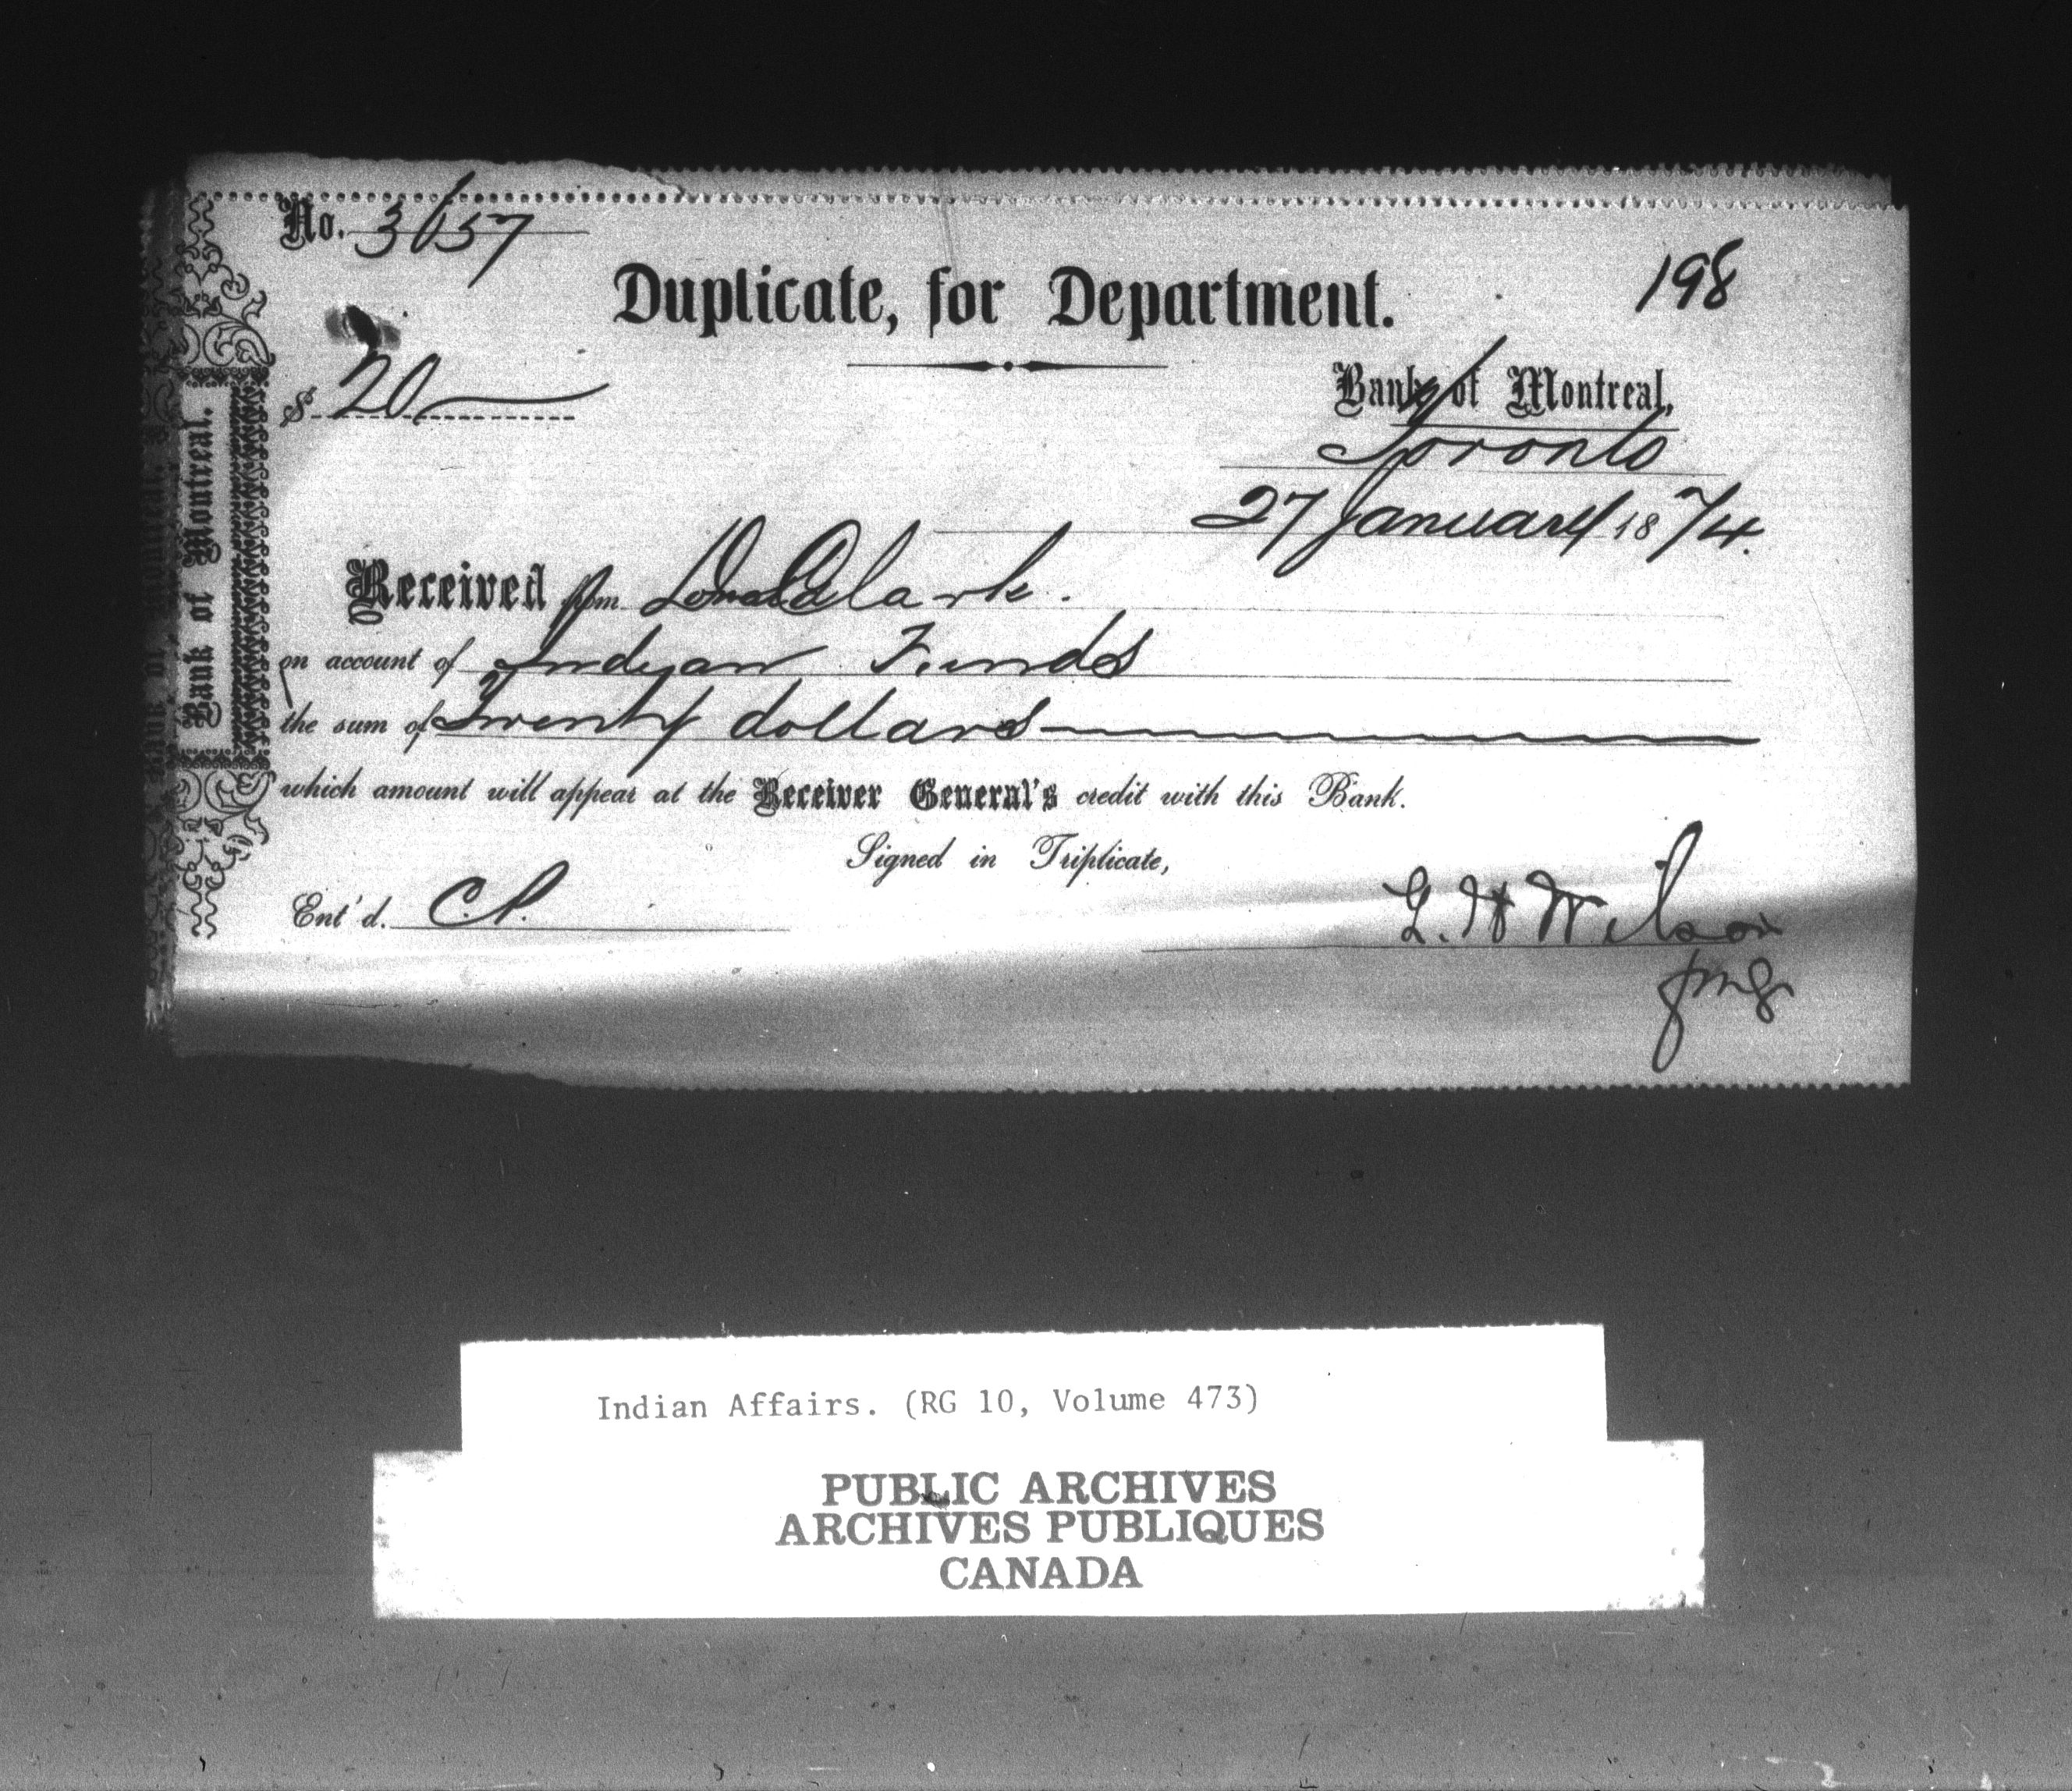 No. 3657
198
Duplicate, for Department.
$ 20
Bank of Montreal,
Toronto
27 January 1874.
Received from Donald Clark.
on account of Indian Funds
the sum of Twenty dollars
which amount will appear at the Receiver General's credit with this Bank.
Signed in Triplicate,
Ent'd.
Wilson
Bank of Montreal.
Indian Affairs. (RG 10, Volume 473)
PUBLIC ARCHIVES
ARCHIVES PUBLIQUES
CANADA